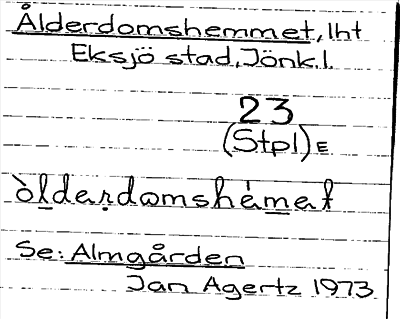 Ålderdomshemmet, lht
Eksjö stad, Jönk.l.
23
(Stpl) E
òl̲daṛdɷmshém̲at
Se: Almgården
Jan Agertz 1973